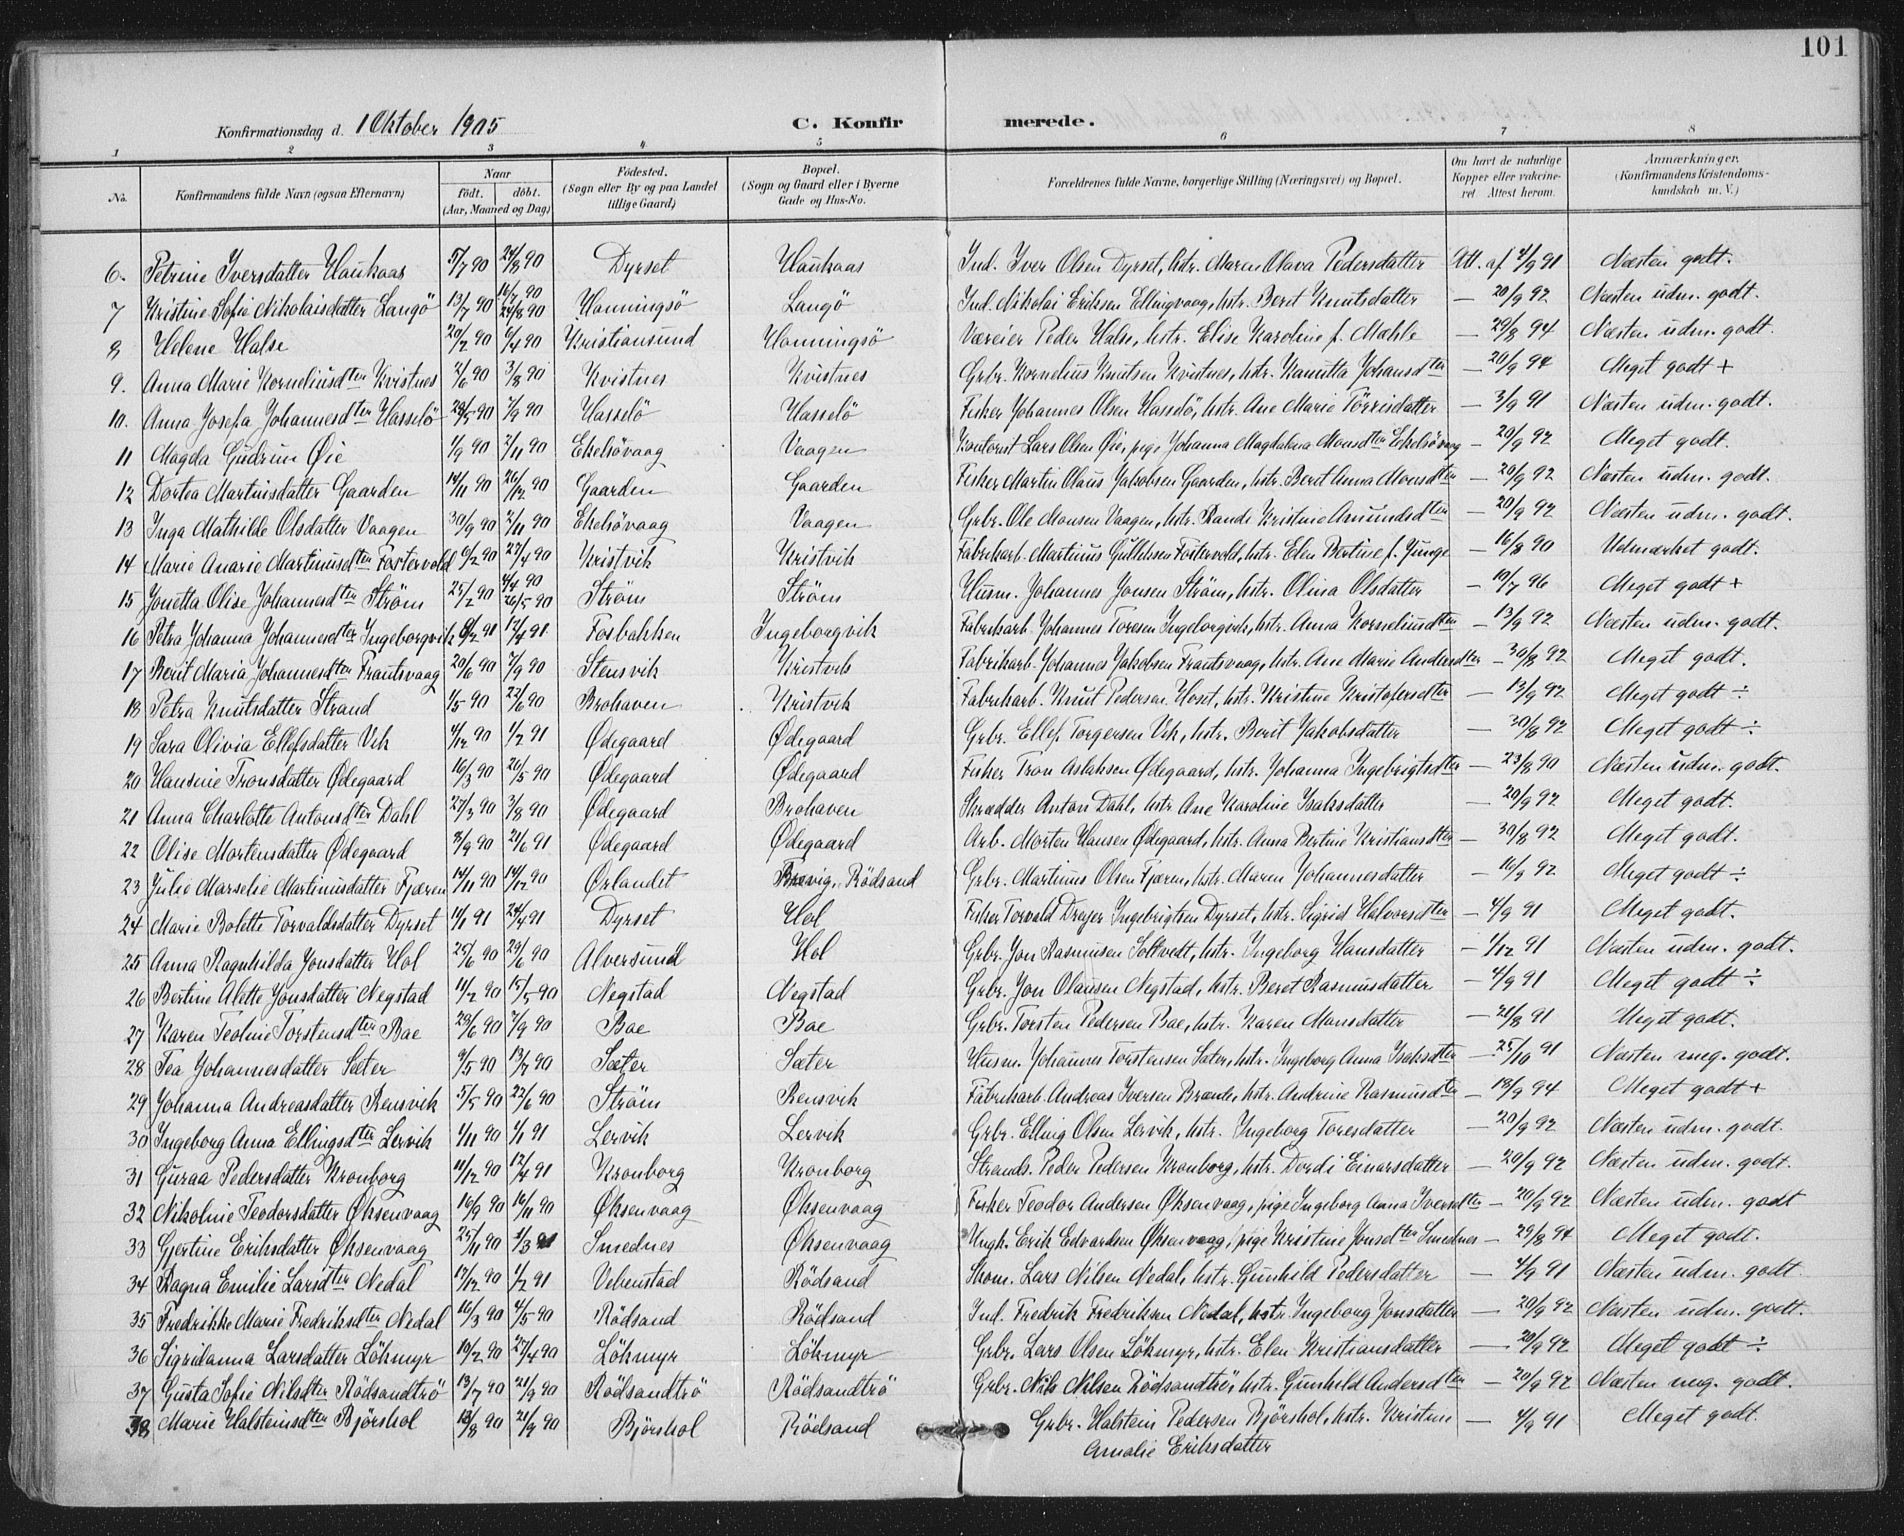 101
Konfirmationsdag d. 1 Oktober 1905 C. Konfirmerede.
1 2 3 4 5 6 7 8
No. Konfirmandens fulde Navn (ogsaa Efternavn) Naar födt. döbt. (Aar, Maaned og Dag) Födested. (Sogn eller By og paa Landet tillige Gaard) Bopæl. (Sogn og Gaard eller i Byerne Gade og Hus-No. Forældrenes fulde Navne, borgerlige Stilling (Næringsvei) og Bopæl. Om havt de naturlige Kopper eller vakcineret. Attest herom. Anmærkninger. (Konfirmandens Kristendomskundskab m. V.)
6. Petrine Iversdatter Haukaas 5/7 90 24/8 90 Dyrset Haukaas Ind. Iver Olsen Dyrset, hstr. Maren Olava Pedersdatter Att. af 4/9 91 Næsten godt.
7 Kristine Sofie Nikolaisdatter Langö 13/7 90 16/7 90 24/8 90 Honningsö Langö Ind. Nikolai Eriksen Ellingvaag, hstr. Beret Knutsdatter — 20/9 92 Næsten udm. godt.
8 Helene Halse 20/2 90 6/4 90 Kristiansund Honningsö Væreier Peder Halse, hstr. Elise Karoline f. Mæhle — 29/8 94 Næsten udm. godt.
9. Anna Marie Korneliusdter Kvistnes 2/6 90 3/8 90 Kvistnes Kvistnes Grbr. Kornelius Knutsen Kvistnes, hstr. Kanutta Johansdter — 20/9 94 Meget godt +
10. Anna Josefa Johannesdter Hasselö 29/5 90 7/9 90 Hasselö Hasselö Fisker Johannes Olsen Hasselö, hstr. Ane Marie Törrisdatter — 3/9 91 Næsten udm. godt.
11 Magda Gudrun Øie 1/9 90 2/11 90 Ekelsövaag Vaagen Kontorist Lars Olsen Øie, pige Johanna Magdalena Monsdter Ekelsövaag — 20/9 92 Meget godt.
12 Dortea Martinsdatter Gaarden 14/11 90 26/12 90 Gaarden Gaarden Fisker Martin Olaus Jakobsen Gaarden, hstr. Beret Anna Monsdter — 20/9 92 Næsten udm. godt.
13 Inga Mathilde Olsdatter Vaagen 30/9 90 2/11 90 Ekelsövaag Vaagen Grbr. Ole Monsen Vaagen, hstr. Randi Kristine Amundsdter — 20/9 92 Næsten udm. godt.
14 Marie Anarie Martinusdter Fostervold 6/2 90 27/4 90 Kristvik Kristvik Fabrikarb. Martinus Gulliksen Fostervold, hstr. Elen Bertine f. Junge — 16/8 90 Udmærket godt.
15 Jonetta Olise Johannesdter Ström 25/2 90 4/4 90 26/5 90 Ström Ström Husm. Johannes Jonsen Ström, hstr. Olina Olsdatter — 10/7 96 Meget godt +
16 Petra Johanna Johannesdter Ingeborgvik 6/2 91 12/4 91 Fosbakken Ingeborgvik Fabrikarb. Johannes Toresen Ingeborgvik, hstr. Anna Korneliusdter — 13/9 92 Næsten udm. godt.
17 Berit Maria Johannesdter Frautsvaag 20/6 90 7/9 90 Stensvik Kristvik Fabrikarb. Johannes Jakobsen Frautsvaag, hstr. Ane Marie Andersdter — 30/8 92 Meget godt.
18 Petra Knutsdatter Strand 1/5 90 22/6 90 Brohaven Kristvik Fabrikarb. Knut Pedersen Hoset, hstr. Kristine Kristofersdter — 13/9 92 Meget godt ÷
19 Sara Olivia Ellefsdatter Vik 4/12 90 1/2 91 Ødegaard Ødegaard Grbr. Ellef Torgersen Vik, hstr. Berit Jakobsdatter — 30/8 92 Meget godt ÷
20 Hansine Tronsdatter Ødegaard 16/3 90 26/5 90 Ødegaard Ødegaard Fisker Tron Aslaksen Ødegaard, hstr. Johanna Ingebrigtsdter — 23/8 90 Næsten udm. godt.
21 Anna Charlotte Antonsdter Dahl 27/3 90 3/8 90 Ødegaard Brohaven Skrædder Anton Dahl, hstr Ane Karoline Isaksdatter — 20/9 92 Meget godt.
22 Olise Mortensdatter Ødegaard 8/9 90 21/6 91 Ødegaard Ødegaard Arb. Morten Hansen Ødegaard, hstr. Anna Bertine Kristiansdter — 30/8 92 Meget godt.
23 Julie Marselie Martinusdatter Fjæren 14/11 90 14/12 90 Ørlandet Brevig, Rödsand Grbr. Martinus Olsen Fjæren, hstr. Maren Johannesdatter — 16/9 92 Meget godt ÷
24 Marie Bolette Torvaldsdatter Dyrset 14/1 91 24/4 91 Dyrset Hol Fisker Torvald Dreyer Ingebrigtsen Dyrset, hstr. Sigrid Halvorsdter — 4/9 91 Meget godt.
25 Anna Ragnhilda Jonsdatter Hol 25/6 90 29/6 90 Alversund Hol Grbr. Jon Rasmusen Soltvedt, hstr. Ingeborg Hansdatter — 1/12 91 Næsten udm. godt.
26 Bertine Alette Jonsdatter Negstad 11/2 90 15/5 90 Negstad Negstad Grbr. Jon Olausen Negstad, hstr. Beret Rasmusdatter — 4/9 91 Meget godt ÷
27 Karen Teoline Torstensdter Bae 29/6 90 7/9 90 Bae Bae Grbr. Torsten Pedersen Bae, hstr. Karen Monsdatter — 21/8 91 Meget godt.
28 Tea Johannesdatter Sæter 9/5 90 13/7 90 Sæter Sæter Husm. Johannes Torstensen Sæter, hstr. Ingeborg Anna Isaksdter — 25/10 91 Næsten meg. godt.
29 Johanna Andreasdatter Rensvik 5/5 90 22/6 90 Ström Rensvik Fabrikarb. Andreas Iversen Brande, hstr. Andrine Rasmusdter — 18/9 94 Meget godt +
30 Ingeborg Anna Ellingsdter Lervik 1/11 90 1/1 91 Lervik Lervik Grbr. Elling Olsen Lervik, hstr. Ingeborg Toresdatter — 20/9 92 Næsten udm. godt.
31 Guraa Pedersdatter Kronborg 11/12 90 12/4 91 Kronborg Kronborg Strands. Peder Pedersen Kronborg, hstr. Dordi Einarsdatter — 20/9 92 Næsten udm. godt.
32 Nikoline Teodorsdatter Øksenvaag 16/9 90 16/11 90 Øksenvaag Øksenvaag Fisker Teodor Andersen Øksenvaag, pige Ingeborg Anna Iversdter — 20/9 92 Næsten udm. godt
33 Gjertine Eriksdatter Øksenvaag 25/11 90 1/3 91 Smednes Øksenvaag Ungk. Erik Edvardsen Øksenvaag, pige Kristine Jonsdter Smednes — 29/8 94 Meget godt.
34 Ragna Emilie Larsdter Nedal 17/12 90 1/2 91 Vebenstad Rödsand Skom. Lars Nilsen Nedal, hstr. Gunhild Pedersdatter — 4/9 91 Næsten udm. godt
35 Fredrikke Marie Fredriksdter Nedal 16/3 90 4/5 90 Rödsand Rödsand Ind. Fredrik Fredriksen Nedal, hstr Ingeborg Jonsdatter — 20/9 92 Næsten udm. godt.
36 Sigridanna Larsdatter Lökmyr 10/2 90 27/4 90 Lökmyr Lökmyr Grbr. Lars Olsen Lökmyr, hstr. Elen Kristiansdatter — 20/9 92 Meget godt ÷
37 Gusta Sofie Nilsdter Rödsandtrö 13/7 90 21/9 90 Rödsandtrö Rödsandtrö Grbr. Nils Nilsen Rödsandtrö, hstr. Gunhild Andersdter — 20/9 92 Næsten meg. godt.
38 Marie Halsteinsdter Bjørshol 13/8 90 21/9 90 Bjørshol Rödsand Grbr. Halstein Pedersen Bjørshol, hstr. Kristine — 4/9 91 Meget godt.
Amalie Eriksdatter